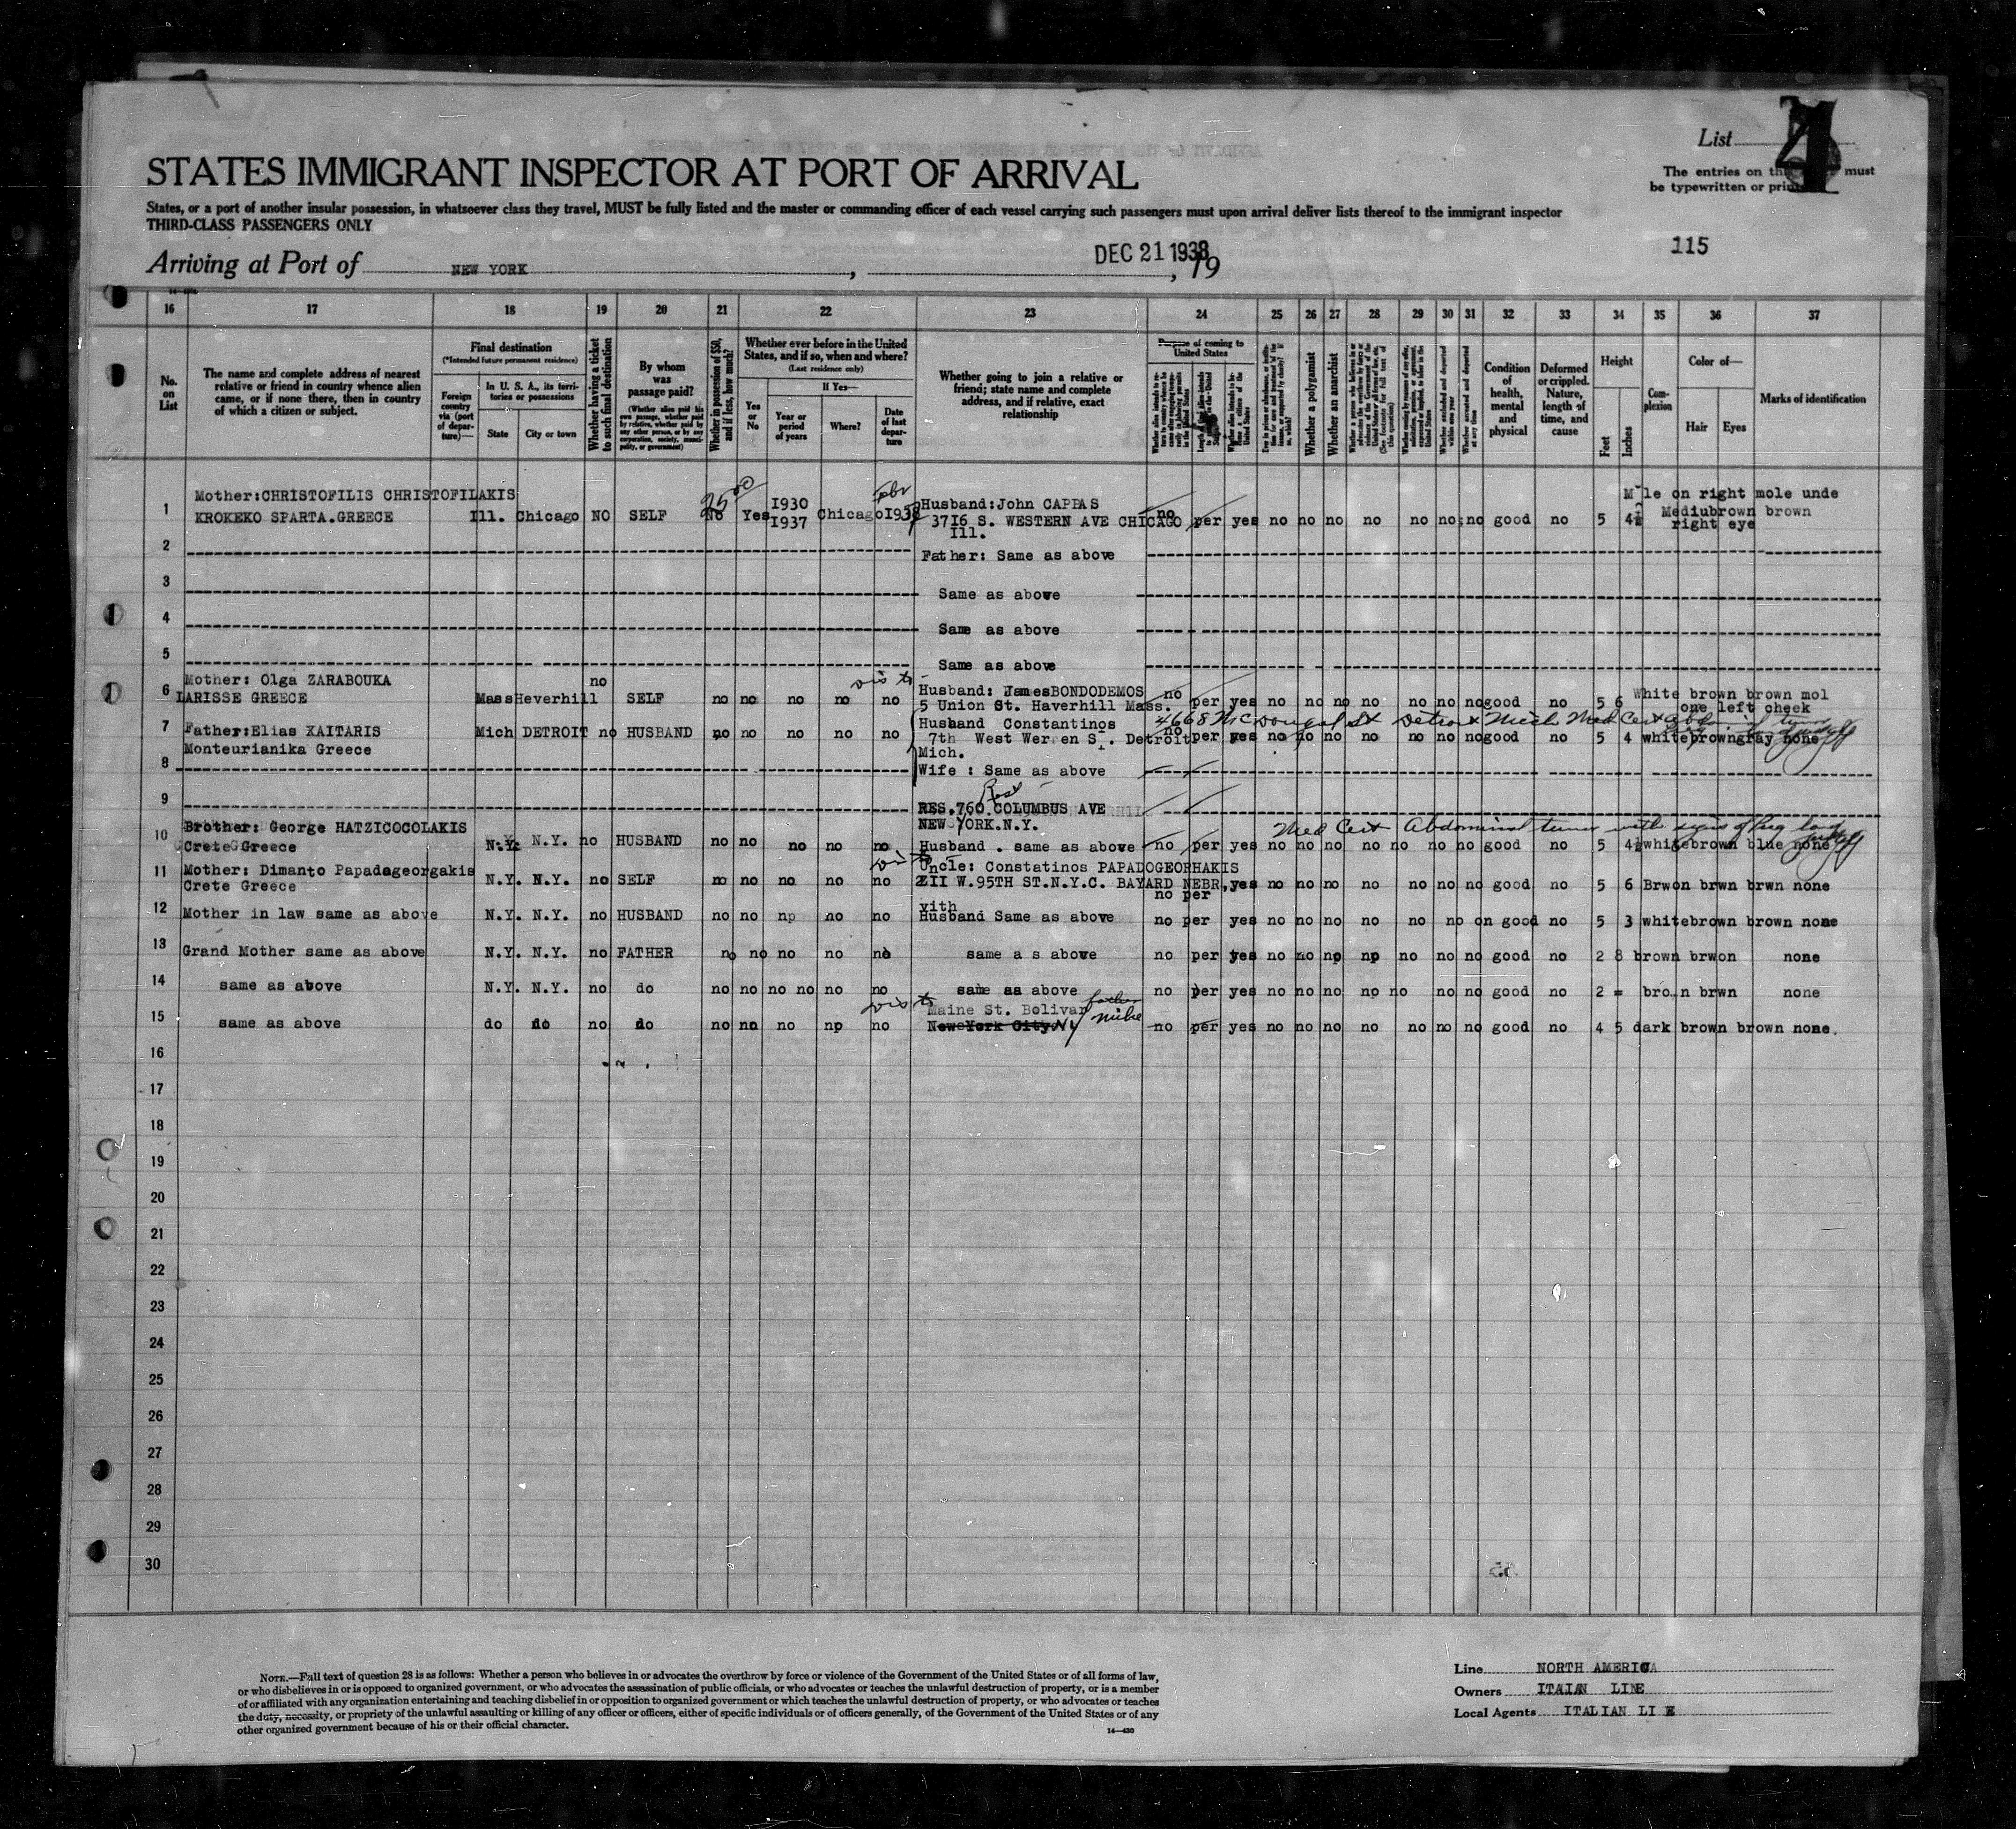 List 4
The entries on this must
be typewritten or prin
STATES IMMIGRANT INSPECTOR AT PORT OF ARRIVAL
States, or a port of another insular possession, in whatsoever class they travel, MUST be fully listed and the master or commanding officer of each vessel carrying such passengers must upon arrival deliver lists thereof to the immigrant inspector
THIRD-CLASS PASSENGERS ONLY
115
Arriving at Port of NEW YORK, DEC 21 1938, 19
16 17 18 19 20 21 22 23 24 25 26 27 28 29 30 31 32 33 34 35 36 37
No. on List
The name and complete address of nearest relative or friend in country whence alien came, or if none there, then in country of which a citizen or subject.
Final destination
(*Intended future permanent residence)
Foreign country via (port of departure)—
In U. S. A., its territories or possessions
State
City or town
Whether having a ticket to such final destination
By whom was passage paid?
(Whether alien paid his own passage, whether paid by relative, whether paid by any other person, or by any corporation, society, municipality, or government)
Whether in possession of $50, and if less, how much?
Whether ever before in the United States, and if so, when and where?
(Last residence only)
Yes or No
If Yes—
Year or period of years
Where?
Date of last departure
Whether going to join a relative or friend; state name and complete address, and if relative, exact relationship
Purpose of coming to United States
Whether a polygamist
Whether an anarchist
Condition of health, mental and physical
Deformed or crippled. Nature, length of time, and cause
Height
Feet
Inches
Complexion
Color of—
Hair
Eyes
Marks of identification
Mother:CHRISTOFILIS CHRISTOFILAKIS 25 00 I930 Febr Husband:John CAPPAS M le on right mole unde
1 KROKEKO SPARTA.GREECE Ill. Chicago NO SELF No Yes I937 Chicago I938 37I6 S. WESTERN AVE CHICAGO no per yes no no no no no no no good no 5 4½ Mediubrown brown
Ill. right eye
2 Father: Same as above
3 Same as above
4 Same as above
5 Same as above
Mother: Olga ZARABOUKA no Husband: JamesBONDODEMOS no White brown brown mol
6 LARISSE GREECE Mass Heverhill SELF no no no no no 5 Union St. Haverhill Mass. per yes no no no no no no no good no 5 6 one left cheek
7 Father:Elias XAITARIS Mich DETROIT no HUSBAND no no no no no Husband Constantinos 4668 McDougal St Detroit Mich Med Cert
Monteurianika Greece 7th West Werren St. Detroit no per yes no no no no no no no good no 5 4 white brown gray none
Mich.
8 Wife : Same as above
9 Rest
RES.760 COLUMBUS AVE
NEW YORK.N.Y.
Brother: George HATZICOCOLAKIS Med Cert Abdominal tumor with signs of
10 Crete Greece N.Y. N.Y. no HUSBAND no no no no no Husband . same as above no per yes no no no no no no no good no 5 4½ white brown blue none
11 Mother: Dimanto Papadageorgakis Uncle: Constatinos PAPADOGEORHAKIS
Crete Greece N.Y. N.Y. no SELF no no no no no 2II W.95TH ST.N.Y.C. BAYARD NEBR, yes no no no no no no no good no 5 6 Brwon brwn brwn none
no per
with
12 Mother in law same as above N.Y. N.Y. no HUSBAND no no np no no Husband Same as above no per yes no no no no no no on good no 5 3 white brown brown none
13 Grand Mother same as above N.Y. N.Y. no FATHER no no no no no same a s above no per yes no no np np no no no good no 2 8 brown brwon none
14 same as above N.Y. N.Y. no do no no no no no no same aa above no per yes no no no np no no no good no 2 = bro n brwn none
Maine St. Bolivar father
15 same as above do do no do no no no np no New York City.NY Mike no per yes no no no no no no no good no 4 5 dark brown brown none.
16
17
18
19
20
21
22
23
24
25
26
27
28
29
30
NOTE.—Full text of question 28 is as follows: Whether a person who believes in or advocates the overthrow by force or violence of the Government of the United States or of all forms of law,
or who disbelieves in or is opposed to organized government, or who advocates the assassination of public officials, or who advocates or teaches the unlawful destruction of property, or is a member
of or affiliated with any organization entertaining and teaching disbelief in or opposition to organized government or which teaches the unlawful destruction of property, or who advocates or teaches
the duty, necessity, or propriety of the unlawful assaulting or killing of any officer or officers, either of specific individuals or of officers generally, of the Government of the United States or of any
other organized government because of his or their official character.
14—430
Line NORTH AMERICA
Owners ITAIAN LINE
Local Agents ITALIAN LI E